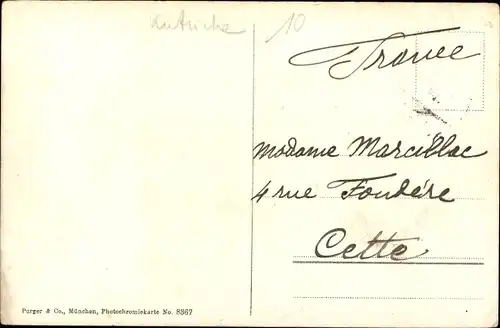 Autriche 10
France
Madame Marcillac
4 rue Foudère
Cette
Purger & Co., München, Photochromiekarte No. 8367